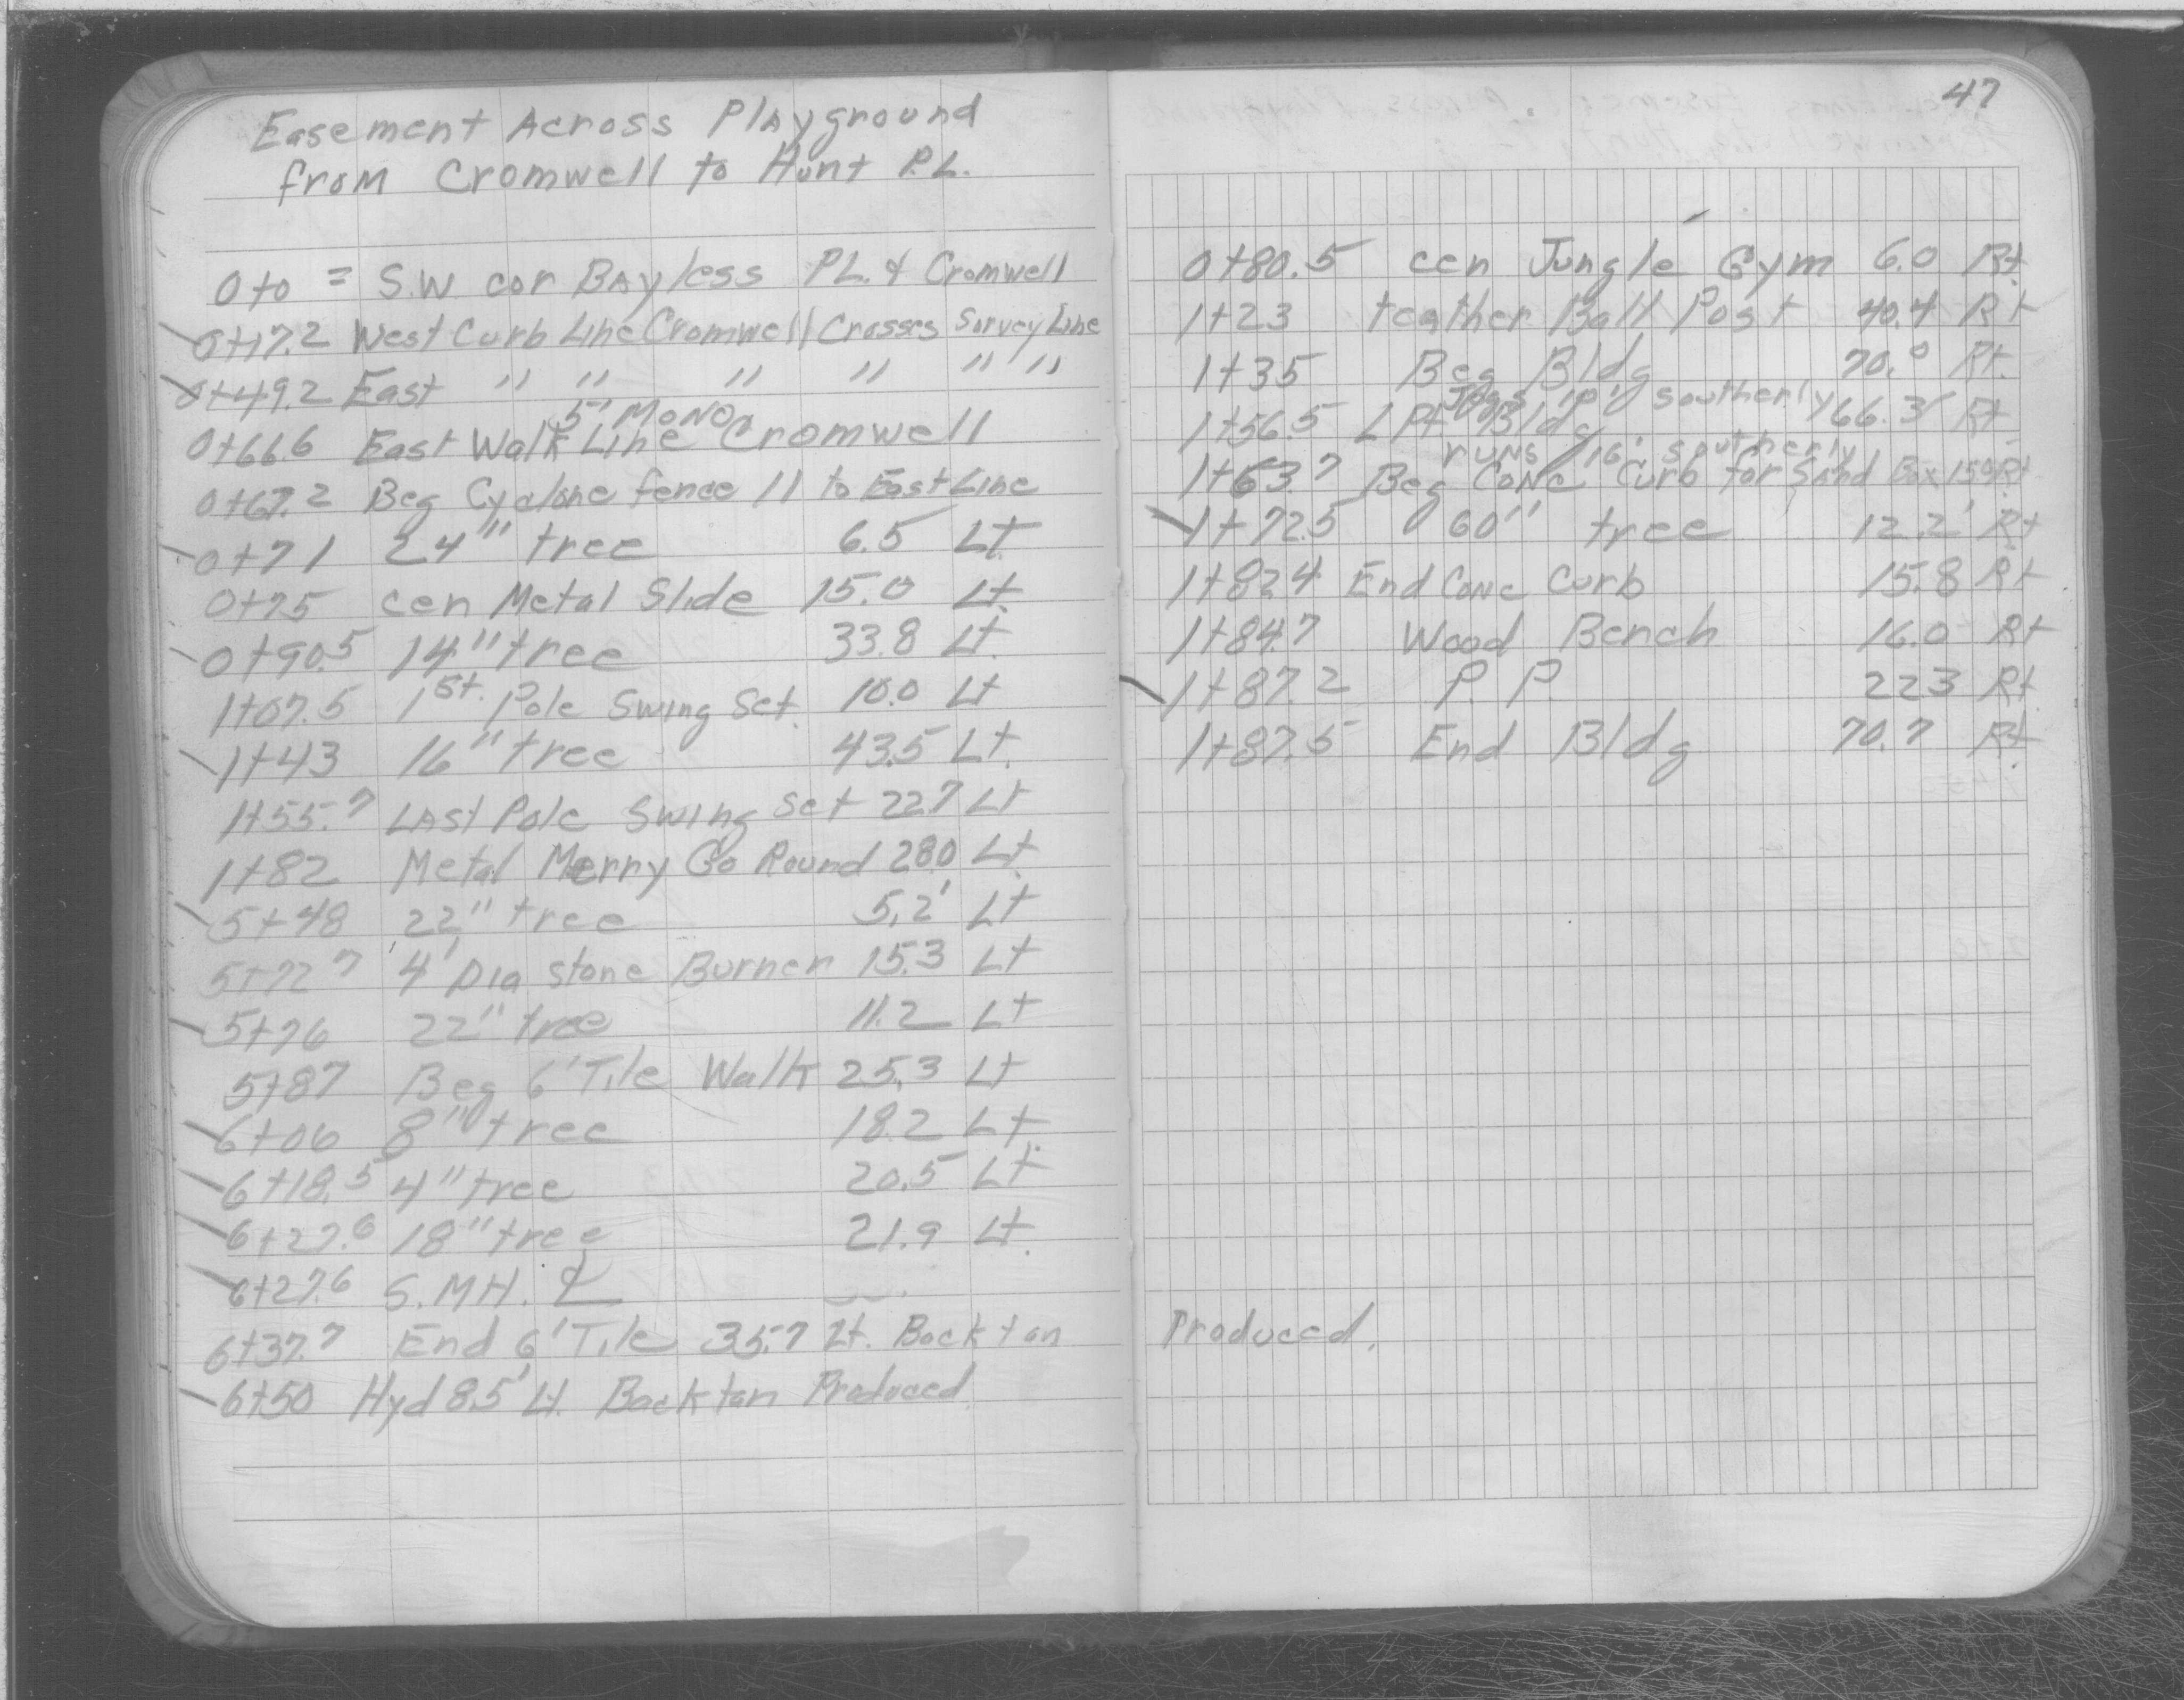 Easement Across Playground
from Cromwell to Hunt P.L.
0+0 = S.W. cor Bayless PL. & Cromwell
0+17.2 West Curb Line Cromwell Crosses Survey Line
0+49.2 East " " " " " "
5' MONO
0+66.6 East Walk Line Cromwell
0+67.2 Beg Cyclone fence 11 to East Line
0+71 24" tree 6.5 Lt
0+75 cen Metal Slide 15.0 Lt.
0+90.5 14" tree 33.8 Lt.
1+07.5 1st. Pole Swing Set. 10.0 Lt
1+43 16" tree 43.5 Lt.
1+55.7 Last Pole Swing Set 22.7 Lt
1+82 Metal Merry Go Round 28.0 Lt.
5+48 22" tree 5.2' Lt
5+72.7 4' Dia Stone Burner 15.3 Lt
5+76 22" tree 11.2 Lt
5+87 Beg 6' Tile Walk 25.3 Lt
6+06 8" tree 18.2 Lt.
6+18.5 4" tree 20.5 Lt
6+27.6 18" tree 21.9 Lt.
6+27.6 S.MH. ℄
6+37.7 End 6' Tile 35.7 Lt. Back tan Produced.
6+50 Hyd 8.5' Lt. Back tan Produced
47
0+80.5 cen Jungle Gym 6.0 Rt.
1+23 teather Ball Post 40.4 Rt
1+35 Beg Bldg 70.0 Rt.
Jogs 10' southerly
1+56.5 L Pt Bldg 66.3 Rt
runs 16' southerly
1+63.7 Beg Conc Curb for Sand Box 15.9 Rt
1+72.5 60" tree 12.2' Rt
1+82.4 End Conc Curb 15.8 Rt
1+84.7 Wood Bench 16.0 Rt
1+87.2 P.P. 22.3 Rt
1+87.5 End Bldg 70.7 Rt.